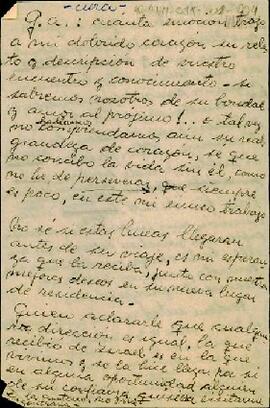 cura
Q.a.: cuanta emocion trajo
a mi dolorido corazon, su rela
to y descripcion de vuestro
encuentro y conocimiento. si
sabremos nosotros de su bondad
y amor al projimo!.. e tal vez
no comprendamos aun su real
grandeza de corazon, se que
no concibo la vida sin él, como
no he de perseverar, que siempre
es poco, en este mi unico trabajo
No se si estas lineas llegaran
antes de su viaje, es mi esperan
za que la reciba, junto con nuestros
mejores deseos en su nuevo lugar
de residencia.
Quiero aclararle que cualquier
direccion, es igual, la que
recibio de Israel es en la que
vivimos y se la hice llegar por si
en alguna oportunidad alguien
de su confianza quisiera visitarme